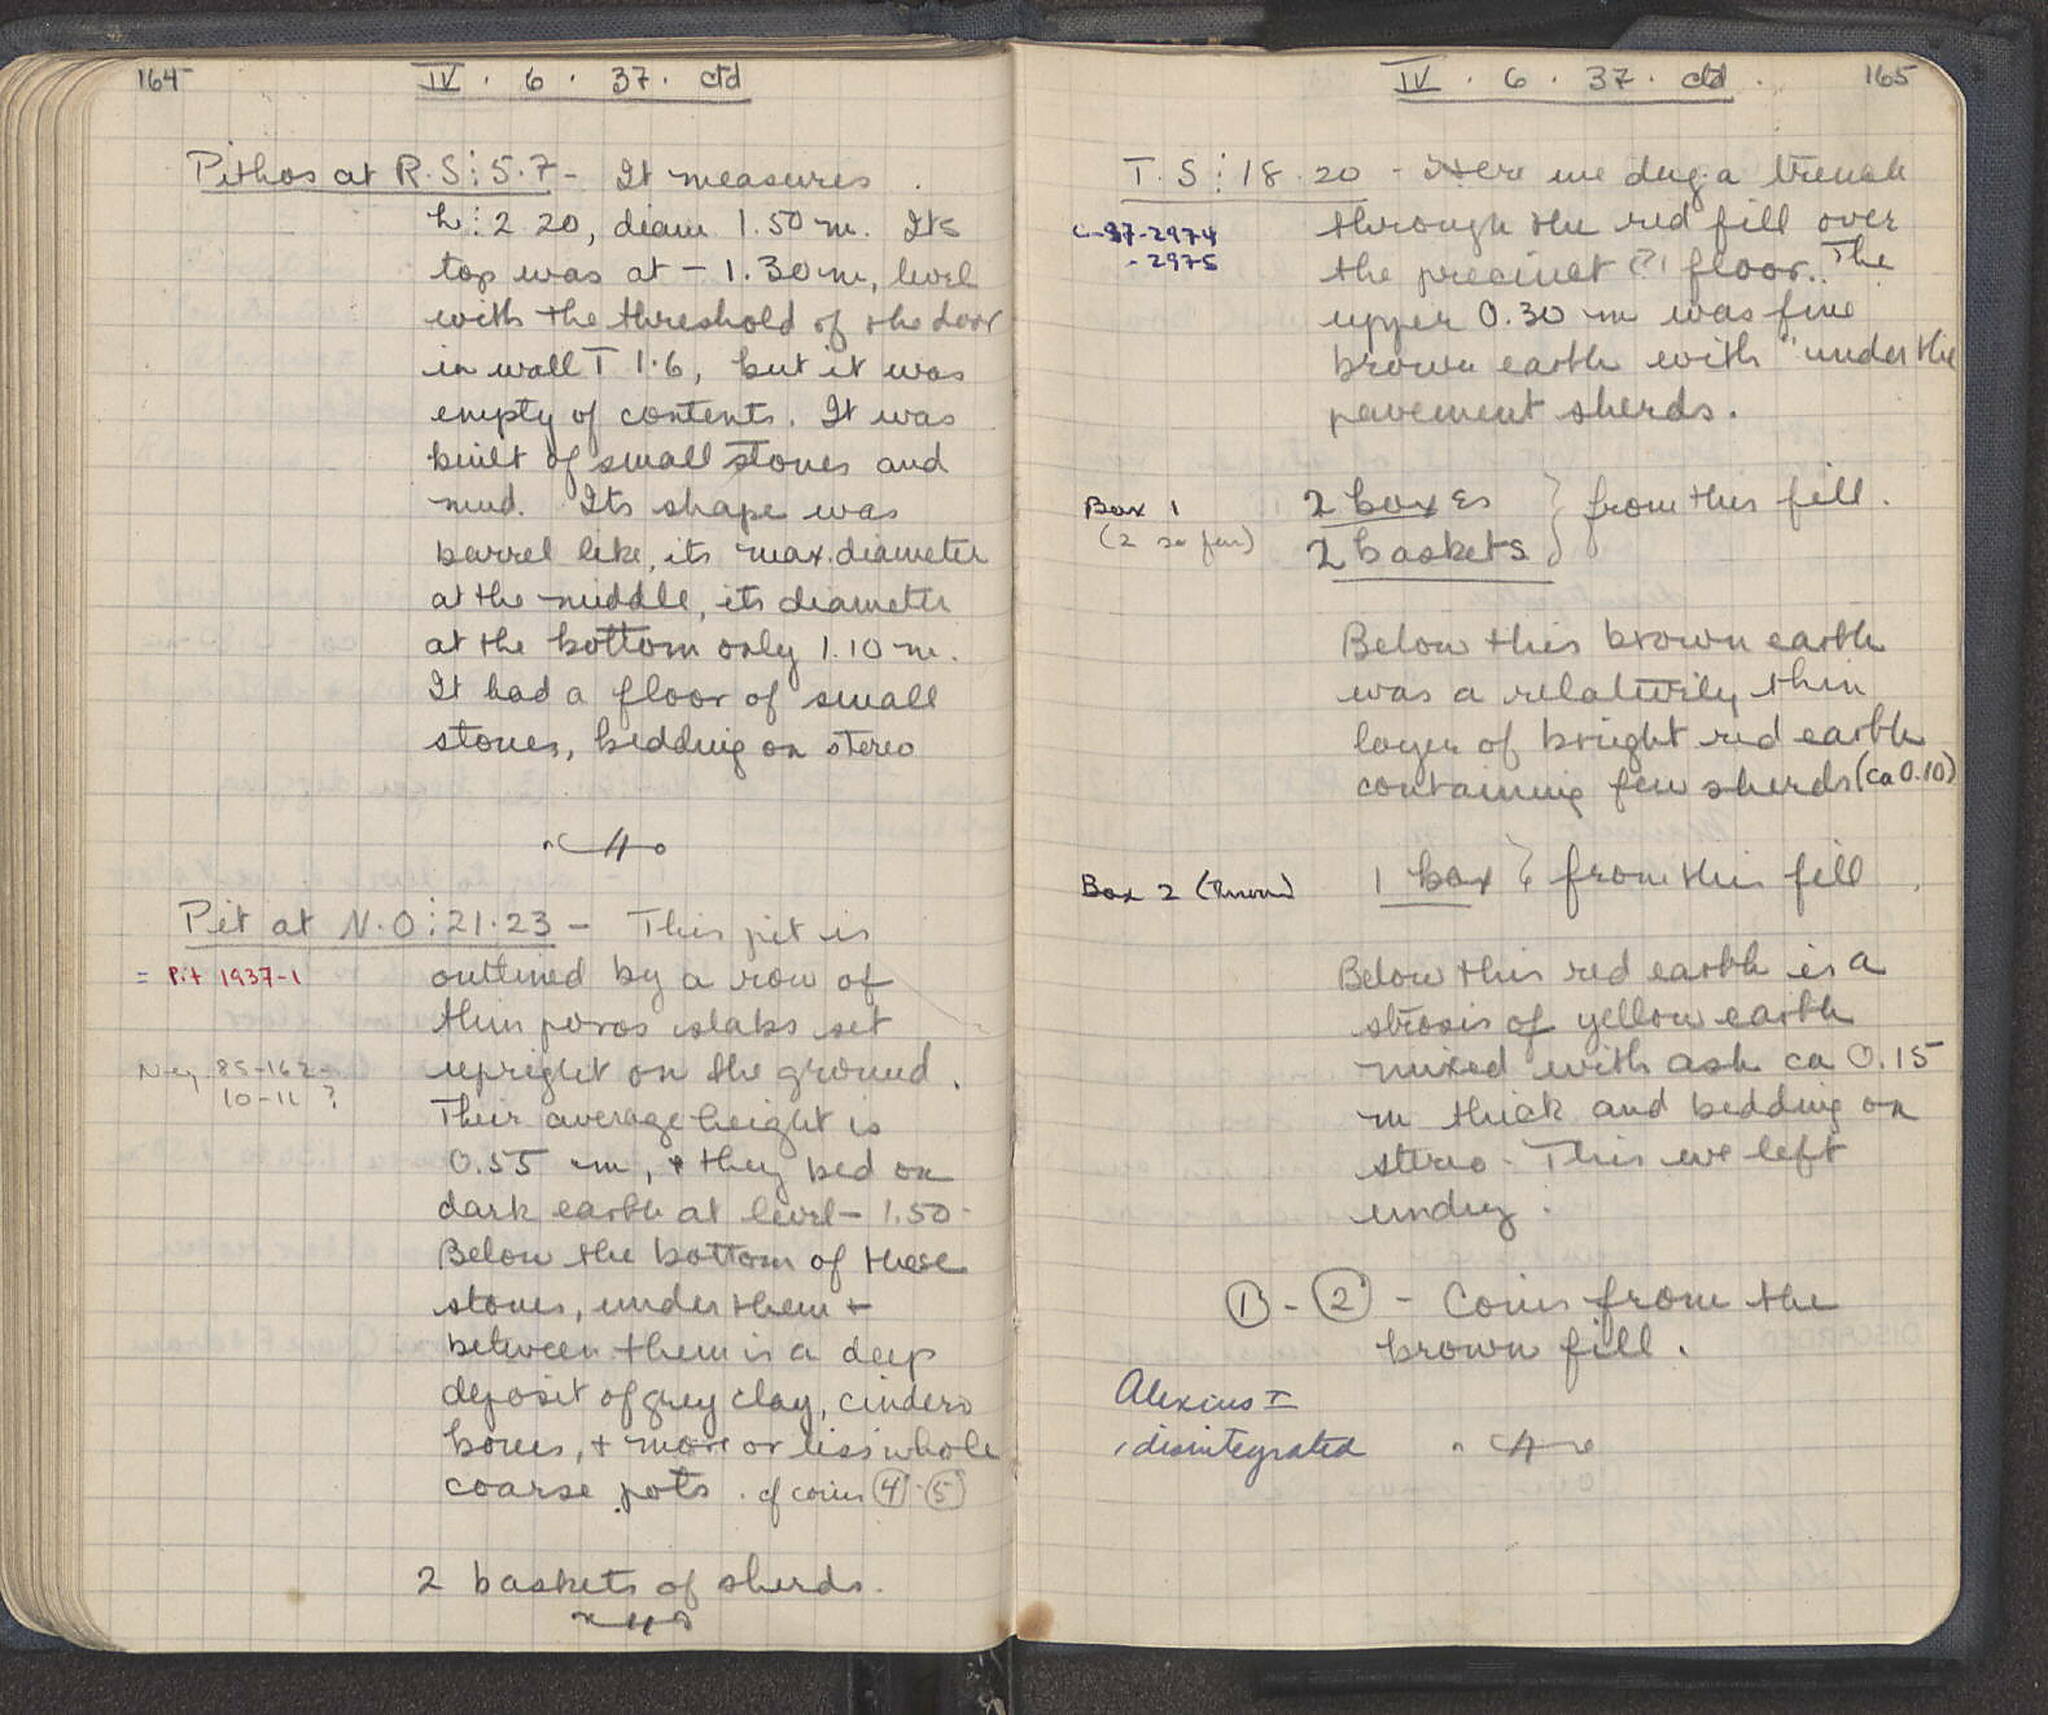 164
IV . 6 . 37 . ctd
Pithos at R.S: 5.7 - It measures
h: 2.20, diam 1.50 m. Its
top was at - 1.30 m, level
with the threshold of the door
in wall T 1.6, but it was
empty of contents. It was
built of small stones and
mud. Its shape was
barrel like, its max. diameter
at the middle, its diameter
at the bottom only 1.10 m.
It had a floor of small
stones, bedding on stereo
Pit at N.O: 21.23 - This pit is
= Pit 1937-1
outlined by a row of
thin poros slabs set
Neg. 85-162-
10-11 ?
upright on the ground.
Their average height is
0.55 m, + they bed on
dark earth at level - 1.50
Below the bottom of these
stones, under them +
between them is a deep
deposit of grey clay, cinders
bones, + more or less whole
coarse pots. cf coins 4 - 5
2 baskets of sherds.
IV . 6 . 37 . ctd .
165
T. S: 18.20 - Here we dug a trench
C-37-2974
- 2975
through the red fill over
the precinct (?) floor. The
upper 0.30 m was fine
brown earth with "under the
pavement sherds.
Box 1
(2 so far)
2 boxes
2 baskets
from this fill.
Below this brown earth
was a relatively thin
layer of bright red earth
containing few sherds (ca 0.10)
Box 2
1 box from this fill
Below this red earth is a
strosis of yellow earth
mixed with ash ca 0.15
m thick and bedding on
stereo. This we left
undug.
1 - 2 - Coins from the
brown fill.
Alexius I
disintegrated